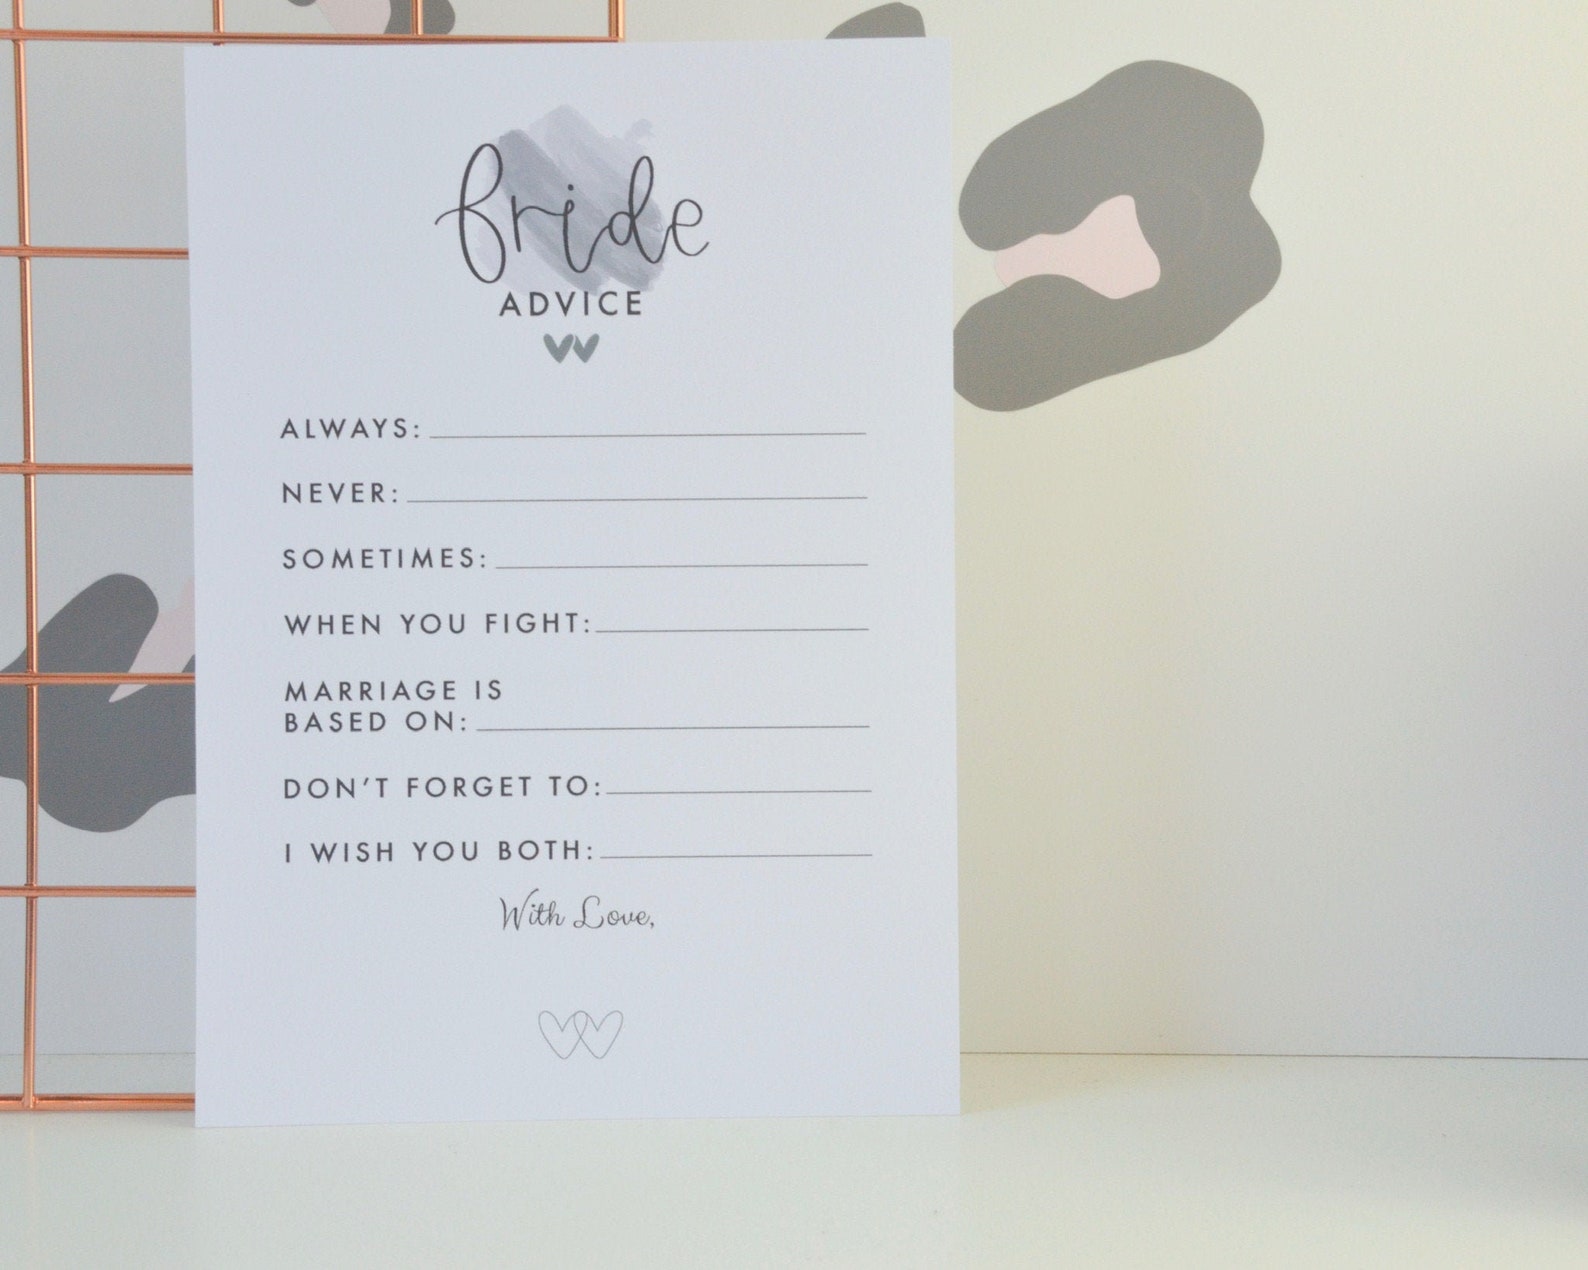 bride
ADVICE
ALWAYS:
NEVER:
SOMETIMES:
WHEN YOU FIGHT:
MARRIAGE IS
BASED ON:
DON'T FORGET TO:
I WISH YOU BOTH:
With Love,